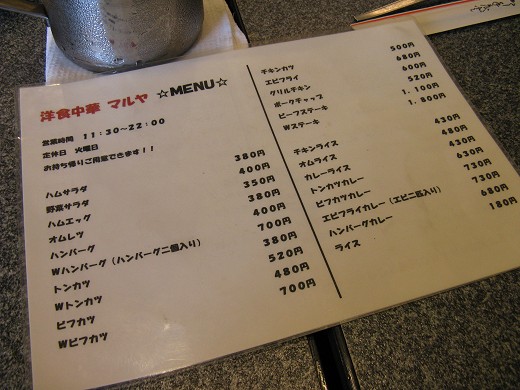 洋食中華 マルヤ ☆MENU☆
営業時間 11:30~22:00
定休日 火曜日
お持ち帰りご用意できます!!
ハムサラダ 380円
野菜サラダ 400円
ハムエッグ 350円
オムレツ 380円
ハンバーグ 400円
Wハンバーグ(ハンバーグ二個入り) 700円
トンカツ 380円
Wトンカツ 520円
ビフカツ 480円
Wビフカツ 700円
チキンカツ 500円
エビフライ 680円
グリルチキン 600円
ポークチャップ 520円
ビーフステーキ 1.100円
Wステーキ 1.800円
チキンライス 430円
オムライス 480円
カレーライス 430円
トンカツカレー 630円
ビフカツカレー 730円
エビフライカレー(エビニ匹入り)
ハンバーグカレー 680円
ライス 180円